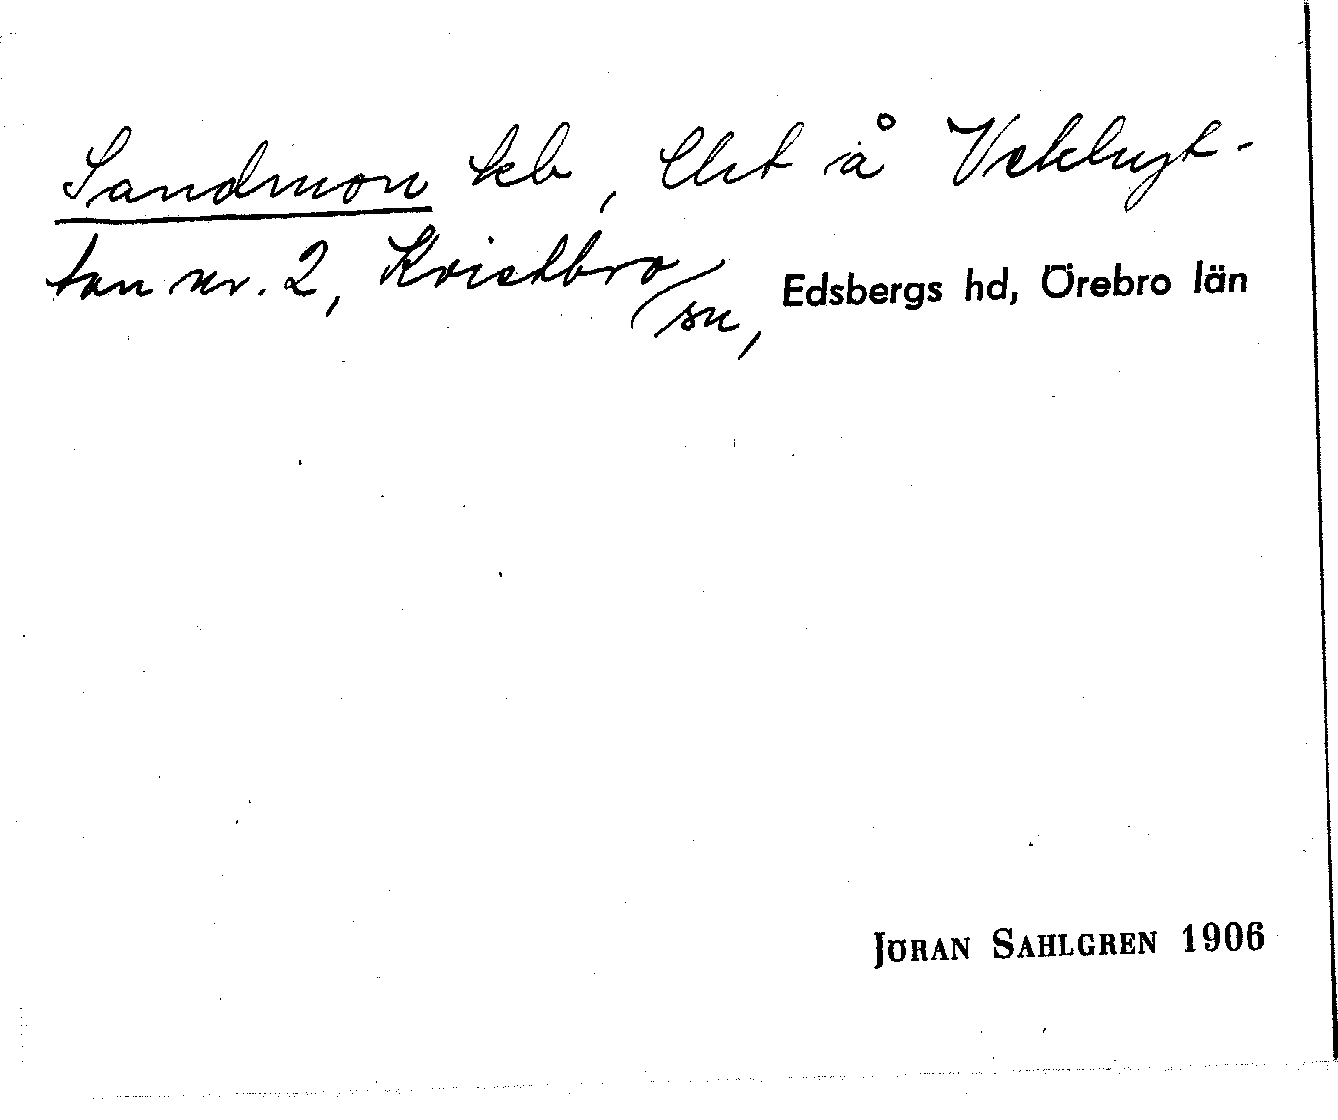 Sandmon leb, Utst å Vekhyt-
tan nr. 2, Kvistbro
sn, Edsbergs hd, Örebro län
JÖRAN SAHLGREN 1906